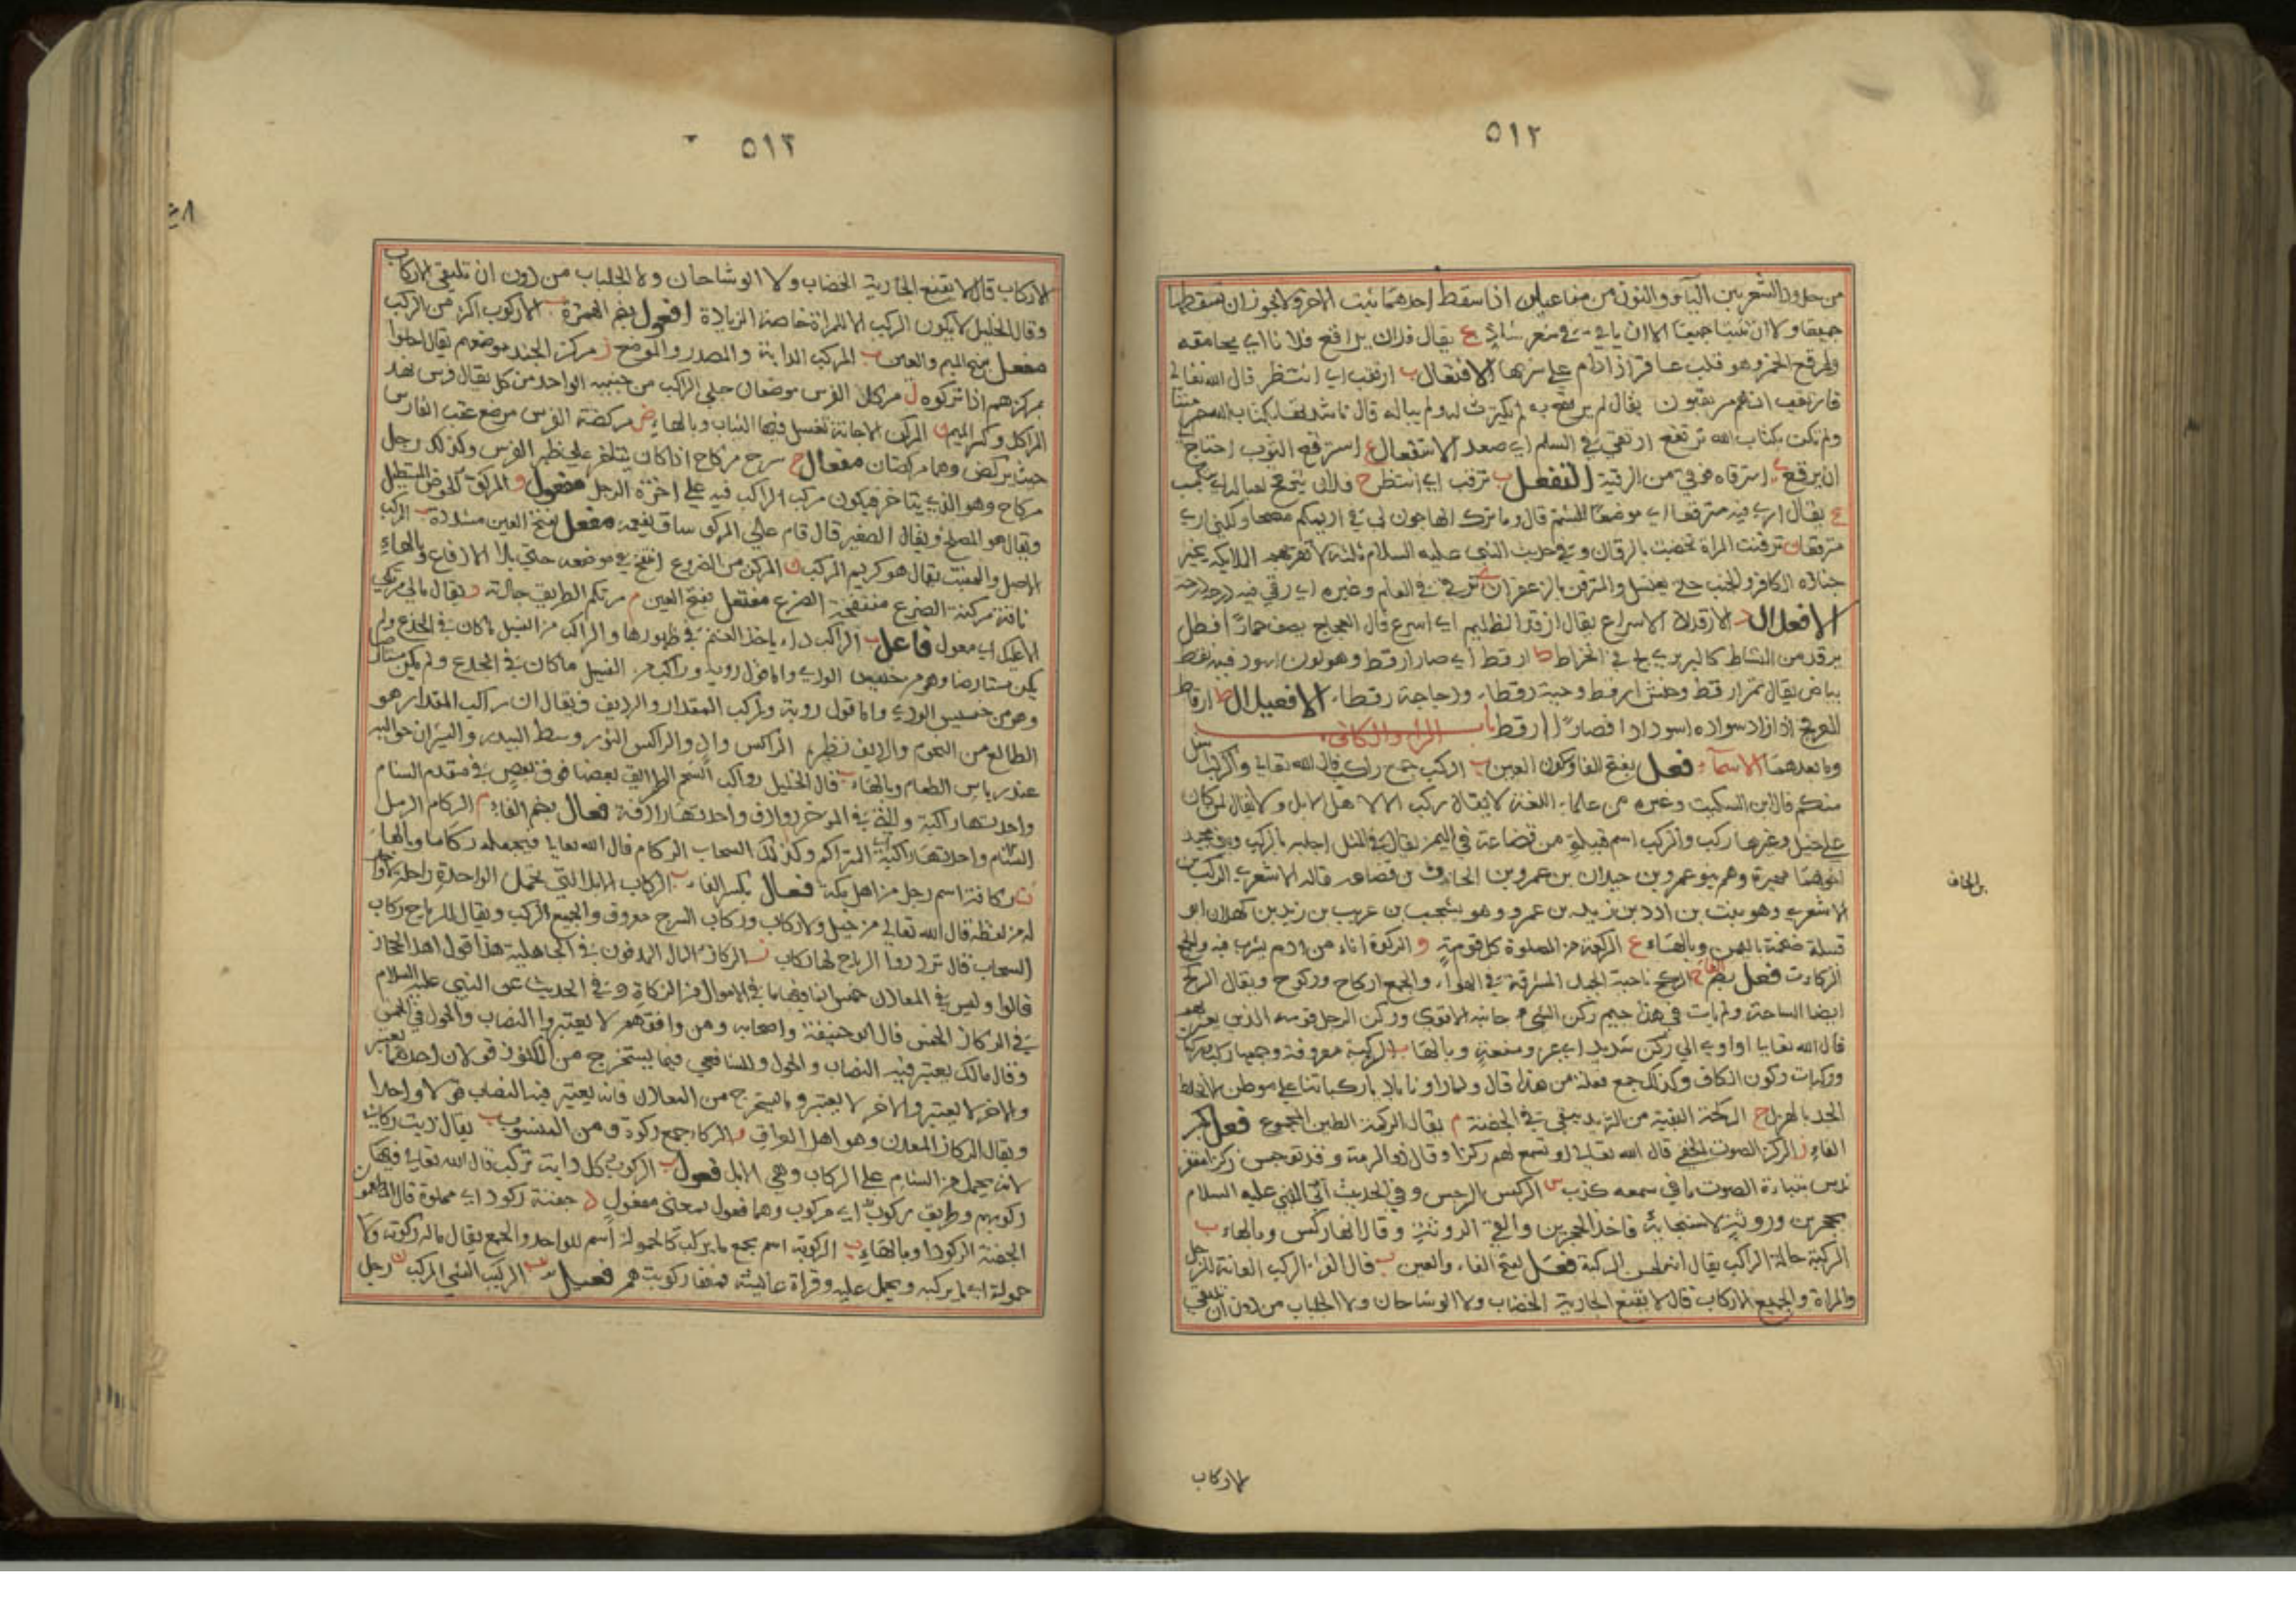 ٥١٢
من حدود الشعر بين الياء والنون من مفاعيلن اذا سقط احدهما ثبت الاخر ولا يجوز ان تسقطا
جميعا ولا ان تثبتا جميعا الا ان ياتي في شعر شاذ ع يقال فلان يراقع فلانا اي
وهو قلب عاقر اذا ادام على شربها الافتعال ب ارتقب اي انتظر قال الله تعالى
فارتقب انهم مرتقبون يقال لم يرتقع به لم يكترث له ولم يباله قال ناشدتها بكتاب الله حرمتنا
ولم تكن بكتاب الله ترتقع ارتقى في السلم اي صعد الاستفعال ع استرقع الثوب احتاج
ان يرقع ي استرقاه فرقى من الرقية التفعل ب ترقب اي انتظر ح فلان يترقح لعياله اي يكتسب
ع يقال ارى فيه مترقعا اي موضعا للشتم قال وما ترك الهاجون لي في اديمكم مصحا ولكني ارى
مترقعا ن ترقنت المراة تخضبت بالرقان وفي حديث النبي عليه السلام ثلثة لا تقربهم الملايكة بخير
جنازة الكافر والجنب حتى يغتسل والمترقن بالزعفران ي ترقى في العلم وغيره اي رقي فيه درجة درجة
الافعلال د الارقداد الاسراع يقال ارقد الظليم اي اسرع قال العجاج يصف حمارا فظل
يرقد من النشاط كالبربري لج في انخراط ط ارقط اي صار ارقط وهو لون اسود فيه نقط
بياض يقال نمر ارقط وحنش ارقط وحية رقطاء ودجاجة رقطاء الافعيلال ط ارقاط
العرفج اذا زاد سواده اسودادا فصار ارقط باب الراء والكاف
وما بعدهما الاسماء فعل بفتح الفا وسكون العين ب الركب جمع راكب قال الله تعالى والركب اسفل
منكم قال ابن السكيت وغيره من علماء اللغة لا يقال ركب الا لاهل الابل ولا يقال لمن كان
على خيل وغيرها ركب والركب اسم قبيلة من قضاعة في اليمن يقال في المثل اجلبه بالركب
وهم بنو عمرو بن حيدان بن عمرو بن الحاف بن قضاعة قاله الاشعري الركب بن
الاشعري وهو نبت بن ادد بن زيد بن عمرو وهو يشجب بن عريب بن زيد بن كهلان ابو
قبيلة ضخمة باليمن وبالهاء ع الركعة من الصلوة كل قومة و الركوة اناء من ادم يشرب فيه والجمع
الركاء فعل بضم الفاء ح الركح ناحية الجبل المشرفة في الهواء والجمع اركاح وركوح ويقال الركح
ايضا الساحة ن ركن الشيء جانبه الاقوى وركن الرجل قومه الذين يعتز بهم
قال الله تعالى او اوي الى ركن شديد اي عز ومنعة وبالهاء ب الركبة معروفة وجمعها ركب
وركبات بسكون الكاف وكذلك جمع فعلة من هذا قال ولما راونا باديا ركباتنا على موطن لا نخلط
الجد بالهزل ح الركحة البقية من الثريد يبقى في الجفنة م يقال الركمة الطين المجموع فعل بكسر
الفاء ز الركز الصوت الخفي قال الله تعالى او تسمع لهم ركزا وقال ذو الرمة وقد توجس ركزا مقفر
ندس بنباءة الصوت ما في سمعه كذب س الركس الرجس وفي الحديث اتي النبي عليه السلام
بحجرين وروثة لاستنجائه فاخذ الحجرين والقى الروثة وقال انها ركس وبالهاء ب
الركبة حالة الراكب يقال انه لحسن الركبة فعل بفتح الفاء والعين ب قال الفراء الركب العانة للرجل
والمراة والجميع الاركاب قال لا يقنع الجارية الخضاب ولا الوشاحان ولا الجلباب من دون ان تلتقي
بن الحاف
الاركاب
٥١٣
الاركاب قال لا يقنع الجارية الخضاب ولا الوشاحان ولا الجلباب من دون ان تلتقي الاركاب
وقال الخليل لا يكون الركب الا للمراة خاصة الزيادة افعول بضم الهمزة ب الاركوب اكثر من الركب
مفعل بفتح الميم والعين ب المركب الدابة والمصدر والموضع ز مركز الجند موضعهم يقال اخلوا
بمركزهم اذا تركوه ل مركلا الفرس موضعان حيث الراكب من جنبيه الواحد مركل يقال فرس نهد
المراكل وكسر الميم ن المركن الاجانة تغسل فيها الثياب وبالهاء ض مركضة الفرس موضع عقب الفارس
حيث يركض وهما مركضتان مفعال ح سرج مركاح اذا كان يتاخر على ظهر الفرس وكذلك رحل
مركاح وهو الذي يتاخر فيكون مركب الراكب فيه على اخرة الرحل مفعول و المركو الحوض المستطيل
ويقال هو المصلح ويقال الصغير قال قام على المركو ساق يفعمه مفعل بفتح العين مشددة ب المركب
الاصل والمنبت يقال هو كريم المركب ن المركن من الضروع انتفخ في موضعه حتى يملا الارفاغ وبالهاء
ناقة مركنة الضرع منتفخة الضرع مفتعل بفتح العين م مرتكم الطريق جادته و يقال ما لي مرتكى
الا عليك اي معول فاعل ب الراكب داء ياخذ الغنم في ظهورها والراكب من النخيل ما كان في الجذع ولم
يكن مستارضا وهو من خسيس الودي واما قول روبة وراكب من النخيل ما كان في الجذع ولم يكن مستارضا
وهو من خسيس الودي واما قول روبة وراكب المقدار والرديف فيقال ان راكب المقدار هو
الطالع من النجوم والرديف نظيره س الراكس واد والراكس الثور وسط البيدر والثيران حواليه
عند دياس الطعام وبالهاء ب قال الخليل رواكب الشحم الطرايق بعضها فوق بعض في مقدم السنام
واحدتها راكبة والتي في الموخر روادف واحدتها رادفة فعال بضم الفاء م الركام الرمل
المتراكم وكذلك السحاب الركام قال الله تعالى فيجعله ركاما وبالهاء
ن ركانة اسم رجل من اهل مكة فعال بكسر الفاء ب الركاب الابل التي تحمل الواحدة راحلة
له من لفظه قال الله تعالى من خيل ولا ركاب وركاب السرج معروف والجميع الركب ويقال للرياح ركاب
السحاب قال ترددها الرياح لها ركاب ز الركاز المال المدفون في الجاهلية هذا قول اهل الحجاز
قالوا وليس في المعادن خمس انما فيها ما في الاموال من الزكاة وفي الحديث عن النبي عليه السلام
في الركاز الخمس قال ابو حنيفة واصحابه ومن وافقهم لا يعتبروا النصاب والحول في الخمس
وقال مالك يعتبر فيه النصاب والحول وللشافعي فيما يستخرج من الكنوز قولان احدهما يعتبر
والاخر لا يعتبر والاخر لا يعتبر وما يستخرج من المعادن فانه يعتبر فيه النصاب قولا واحدا
ويقال الركاز المعدن وهو اهل العراق و الركاء جمع ركوة ومن المنسوب ب يقال زيت ركابي
لانه يحمل من الشام على الركاب وهي الابل فعول ب الركوب كل دابة تركب قال الله تعالى فمنها
ركوبهم وطريق ركوب اي مركوب وهما فعول بمعنى مفعول د جفنة ركود اي مملوة قال المطعمون
الجفنة الركودا وبالهاء ب الركوبة اسم يجمع ما يركب كالحمولة اسم للواحد والجمع يقال ما له ركوبة ولا
حمولة اي ما يركبه ويحمل عليه وقراة عائشة فمنها ركوبتهم فعيل ب الركيب الشيء المركب ن رجل